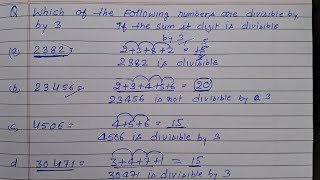 Q. Which of the following numbers are divisible by
by 3 If the sum of digit is divisible
by 3
(a) 2382 = 2+3+8+2 = 15
2382 is divisible
(b) 23456 = 2+3+4+5+6 = 20
23456 is not divisible by 3
(c) 4506 = 4+5+6 = 15
4506 is divisible by 3
d 30471 = 3+4+7+1 = 15
30471 is divisible by 3